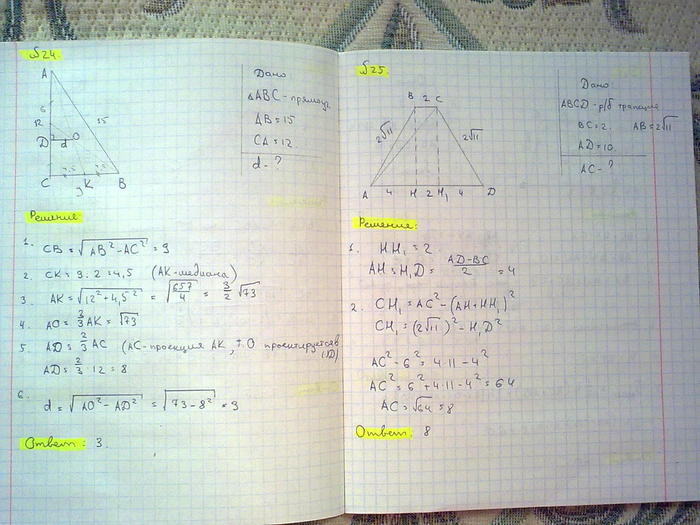 №24.
A
6
12
15
D
d
O
C
7,5
K
7,5
B
9
Дано
△ABC - прямоуг
AB = 15
CA = 12
d - ?
Решение
1. CB = √AB² - AC² = 9
2. CK = 9 : 2 = 4,5 (AK - медиана)
3. AK = √12² + 4,5² = √657/4 = 3/2 √73
4. AO = 2/3 AK = √73
5. AD = 2/3 AC (AC - проекция AK, т. O проецируется (·)D)
AD = 2/3 · 12 = 8
6. d = √AO² - AD² = √73 - 8² = 3
Ответ: 3.
№25.
B 2 C
2√11
2√11
A 4 H 2 H₁ 4 D
Дано:
ABCD - р/б трапеция
BC = 2. AB = 2√11
AD = 10.
AC - ?
Решение:
1. HH₁ = 2
AH = H₁D = AD - BC / 2 = 4
2. CH₁ = AC² - (AH + HH₁)²
CH₁ = (2√11)² - H₁D²
AC² - 6² = 4·11 - 4²
AC² = 6² + 4·11 - 4² = 64
AC = √64 = 8
Ответ: 8